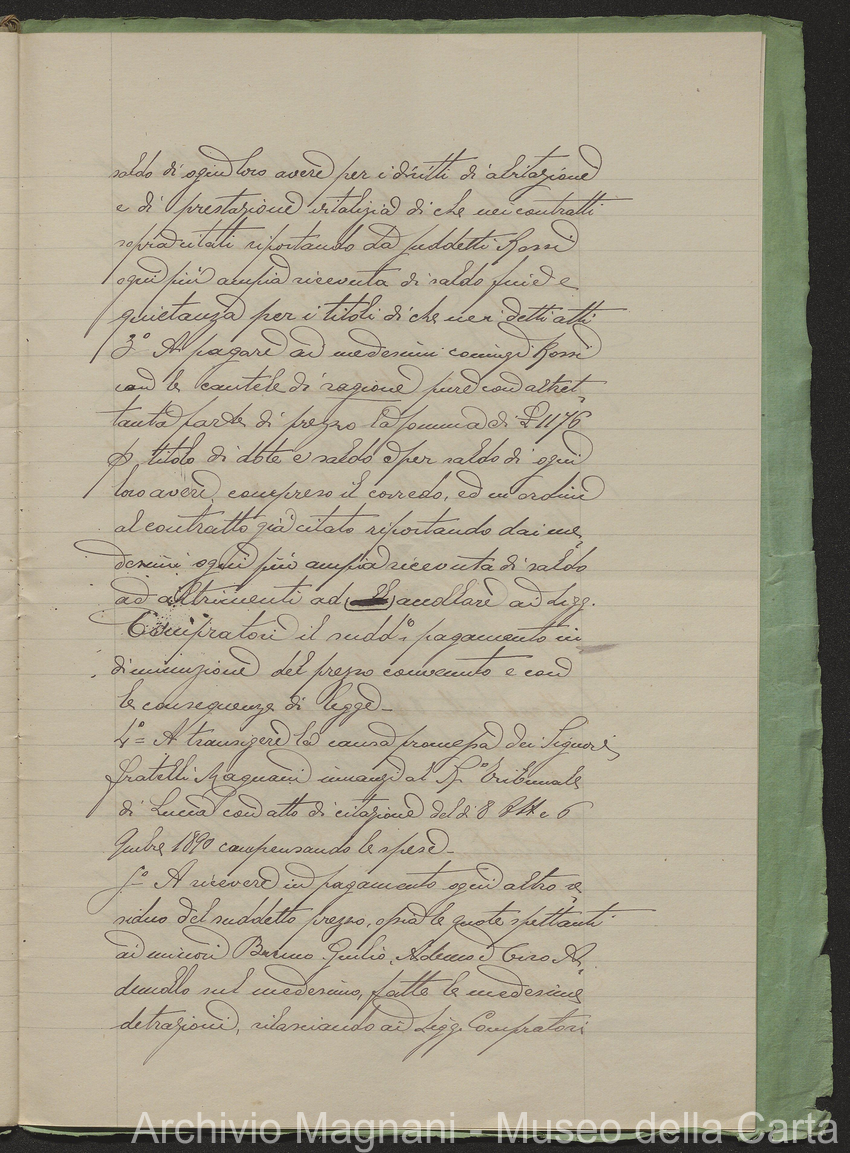 saldo di ogni loro avere per i diritti di abitazione
e di prestazione vitalizia di che nei contratti
sopracitati riportando da suddetti Rossi
ogni più ampia ricevuta di saldo fine e
quietanza per i titoli di che nei detti atti
3° A pagare ai medesimi coniugi Rossi
con le cautele di ragione pure con altret-
tanta parte di prezzo la somma di £ 1176
p titolo di dote e saldo e per saldo di ogni
loro avere, compreso il corredo, ed in ordine
al contratto già citato riportando dai me-
desimi ogni più ampia ricevuta di saldo
ad altrimenti ad accollare ai Sigg.
Compratori il sudd° pagamento in
diminuzione del prezzo convenuto e con
le conseguenze di legge -
4° = A transigere la causa promossa dai Signori
fratelli Magnani innanzi al R° Tribunale
di Lucca con atto di citazione del dì 8 e 6
1890 compensando le spese -
5° A ricevere in pagamento ogni altro re-
siduo del suddetto prezzo, ossia le quote spettanti
ai minori Bruno Giulio, Ademo e Ciro An-
dreotto sul medesimo, fatte le medesime
detrazioni, rilasciando ai Sigg. Compratori
Archivio Magnani - Museo della Carta